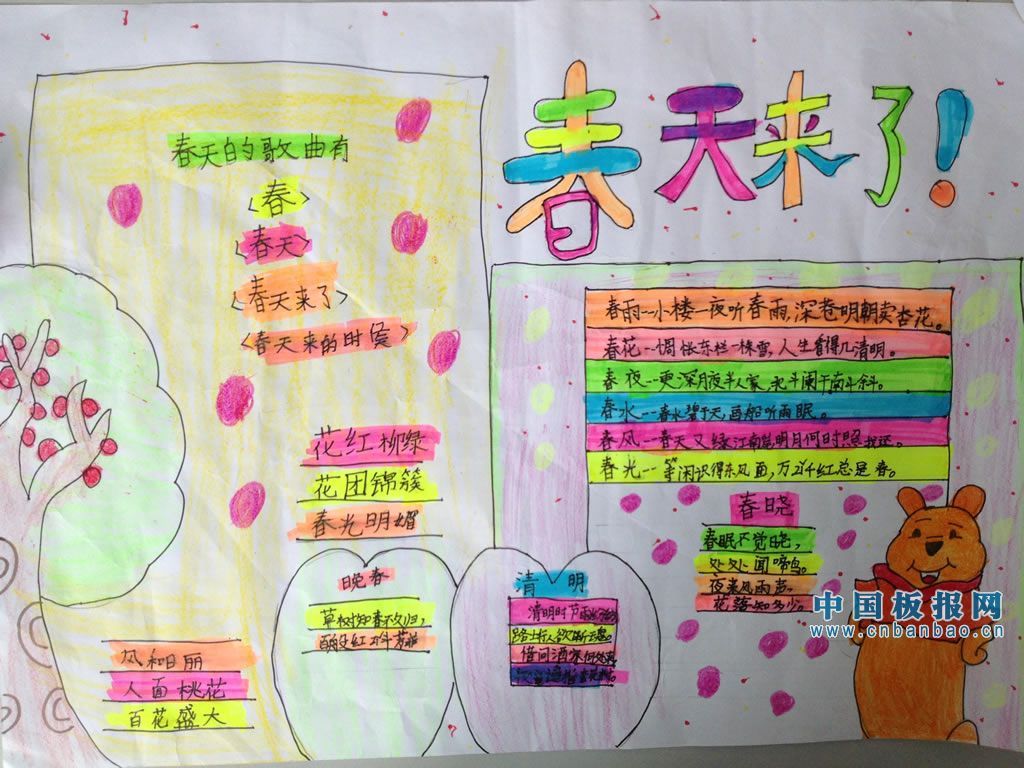 春天来了!
春天的歌曲有
<春>
<春天>
<春天来了>
<春天来的时候>
花红柳绿
花团锦簇
春光明媚
风和日丽
人面桃花
百花盛大
春雨--小楼一夜听春雨,深巷明朝卖杏花。
春花--惆怅东栏一株雪,人生看得几清明。
春夜--更深月夜半人家,北斗阑干南斗斜。
春水--春水碧于天,画船听雨眠。
春风--春天又绿江南岸明月何时照我还。
春光--等闲识得东风面,万紫千红总是春。
春晓
春眠不觉晓,
处处闻啼鸟。
夜来风雨声
花落知多少。
晚春
草树知春不久归,
百般红
清明
清明时节雨
路上行人欲断魂。
借问酒家何处有
中国板报网
www.cnbanbao.cn